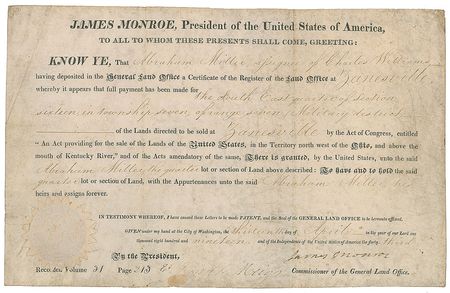 JAMES MONROE, President of the United States of America,
TO ALL TO WHOM THESE PRESENTS SHALL COME, GREETING:
KNOW YE, That Abraham Miller, assignee of Charles Williams
having deposited in the General Land Office a Certificate of the Register of the Land Office at Zanesville
whereby it appears that full payment has been made for the South East quarter of section
sixteen, in township seven, of range seven, Military district
of the Lands directed to be sold at Zanesville by the Act of Congress, entitled
"An Act providing for the sale of the Lands of the United States, in the Territory north west of the Ohio, and above the
mouth of Kentucky River," and of the Acts amendatory of the same, There is granted, by the United States, unto the said
Abraham Miller, the quarter lot or section of Land above described: To have and to hold the said
quarter lot or section of Land, with the Appurtenances unto the said Abraham Miller, his
heirs and assigns forever.
IN TESTIMONY WHEREOF, I have caused these Letters to be made PATENT, and the Seal of the GENERAL LAND OFFICE to be hereunto affixed.
GIVEN under my hand at the City of Washington, the thirteenth day of April in the year of our Lord one
thousand eight hundred and nineteen and of the Independence of the United States of America the forty third
James Monroe
By the President,
Commissioner of the General Land Office.
Recorded, Volume 31 Page